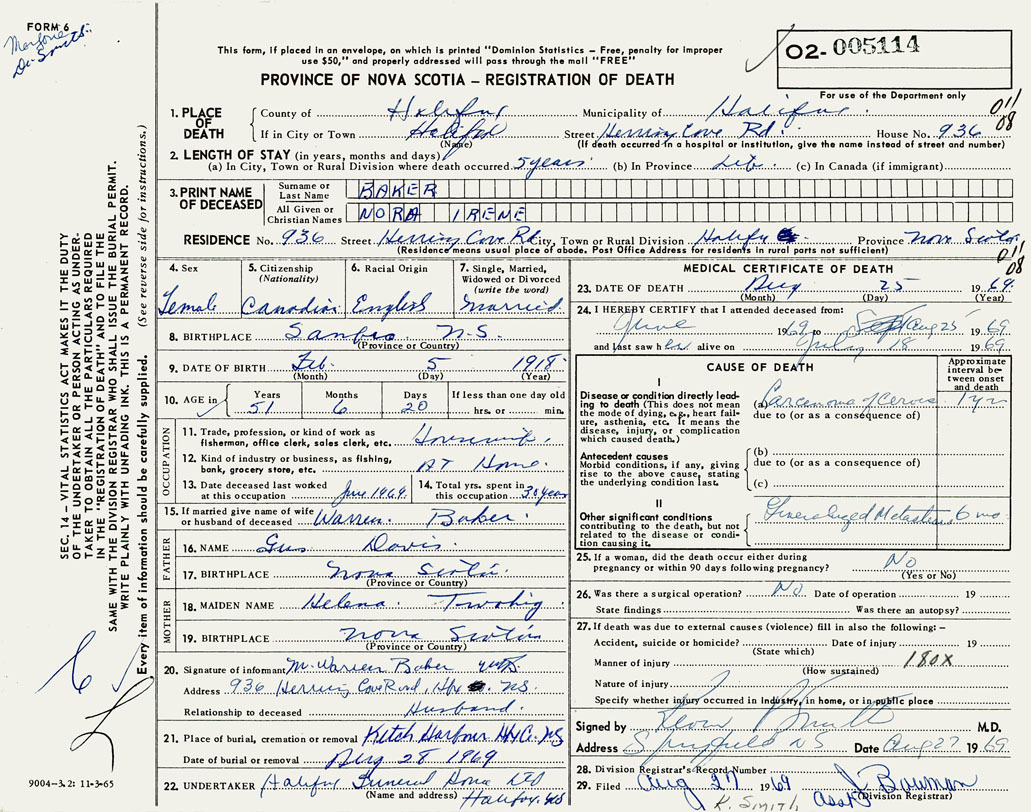 FORM 6
This form, if placed in an envelope, on which is printed "Dominion Statistics – Free, penalty for improper
use $50," and properly addressed will pass through the mail "FREE"
PROVINCE OF NOVA SCOTIA – REGISTRATION OF DEATH
O2- 005114
For use of the Department only
011
08
1. PLACE OF DEATH
County of Halifax Municipality of Halifax
If in City or Town Halifax Street Herring Cove Rd. House No. 936
(Name) (If death occurred in a hospital or institution, give the name instead of street and number)
2. LENGTH OF STAY (in years, months and days)
(a) In City, Town or Rural Division where death occurred 5 years (b) In Province Life (c) In Canada (if immigrant)
3. PRINT NAME OF DECEASED
Surname or Last Name BAKER
All Given or Christian Names NORA IRENE
RESIDENCE No. 936 Street Herring Cove Rd City, Town or Rural Division Halifax Province Nova Scotia
(Residence means usual place of abode. Post Office Address for residents in rural parts not sufficient)
011
08
4. Sex Female
5. Citizenship (Nationality) Canadian
6. Racial Origin English
7. Single, Married, Widowed or Divorced (write the word) Married
8. BIRTHPLACE Sambro N.S.
(Province or Country)
9. DATE OF BIRTH Feb. 5 1918
(Month) (Day) (Year)
10. AGE in Years 51 Months 6 Days 20 If less than one day old hrs. or min.
OCCUPATION
11. Trade, profession, or kind of work as
fisherman, office clerk, sales clerk, etc. Housewife.
12. Kind of industry or business, as fishing,
bank, grocery store, etc. AT Home.
13. Date deceased last worked
at this occupation June 1969
14. Total yrs. spent in
this occupation 30 years
15. If married give name of wife
or husband of deceased Warren Baker
FATHER
16. NAME Gus Davis
17. BIRTHPLACE Nova Scotia
(Province or Country)
MOTHER
18. MAIDEN NAME Helena Twohig
19. BIRTHPLACE Nova Scotia
(Province or Country)
20. Signature of informant M. Warren Baker
Address 936 Herring Cove Road, Hfx NS
Relationship to deceased Husband.
21. Place of burial, cremation or removal Ketch Harbour NS
Date of burial or removal Aug 28 1969
22. UNDERTAKER Halifax Funeral Home LTD
(Name and address) Halifax. NS
MEDICAL CERTIFICATE OF DEATH
23. DATE OF DEATH Aug 25 1969.
(Month) (Day) (Year)
24. I HEREBY CERTIFY that I attended deceased from:
June 1969 to Aug 25 1969
and last saw her alive on July 18 1969
CAUSE OF DEATH
Approximate interval between onset and death
I
Disease or condition directly leading
to death (This does not mean
the mode of dying, e.g., heart failure,
asthenia, etc. It means the
disease, injury, or complication
which caused death.)
(a) Carcinoma of Cervix 1 yr
due to (or as a consequence of)
Antecedent causes
Morbid conditions, if any, giving
rise to the above cause, stating
the underlying condition last.
(b)
due to (or as a consequence of)
(c)
II
Other significant conditions
contributing to the death, but not
related to the disease or condition
causing it.
Generalized Metastases 6 mo
25. If a woman, did the death occur either during
pregnancy or within 90 days following pregnancy? No
(Yes or No)
26. Was there a surgical operation? No. Date of operation 19
State findings Was there an autopsy?
27. If death was due to external causes (violence) fill in also the following: –
Accident, suicide or homicide? Date of injury 19
(State which)
Manner of injury 180X
(How sustained)
Nature of injury
Specify whether injury occurred in Industry, in home, or in public place
Signed by Kevin Smith M.D.
Address Spryfield NS Date Aug 27 1969
28. Division Registrar's Record Number
29. Filed Aug 27 1969 J. Bowman
(Division Registrar)
K. SMITH
SEC. 14 – VITAL STATISTICS ACT MAKES IT THE DUTY
OF THE UNDERTAKER OR PERSON ACTING AS UNDERTAKER
TO OBTAIN ALL THE PARTICULARS REQUIRED
IN THE "REGISTRATION OF DEATH" AND TO FILE THE
SAME WITH THE DIVISION REGISTRAR WHO SHALL ISSUE THE BURIAL PERMIT.
WRITE PLAINLY WITH UNFADING INK. THIS IS A PERMANENT RECORD.
Every item of information should be carefully supplied. (See reverse side for instructions.)
9004-3.2: 11-3-65